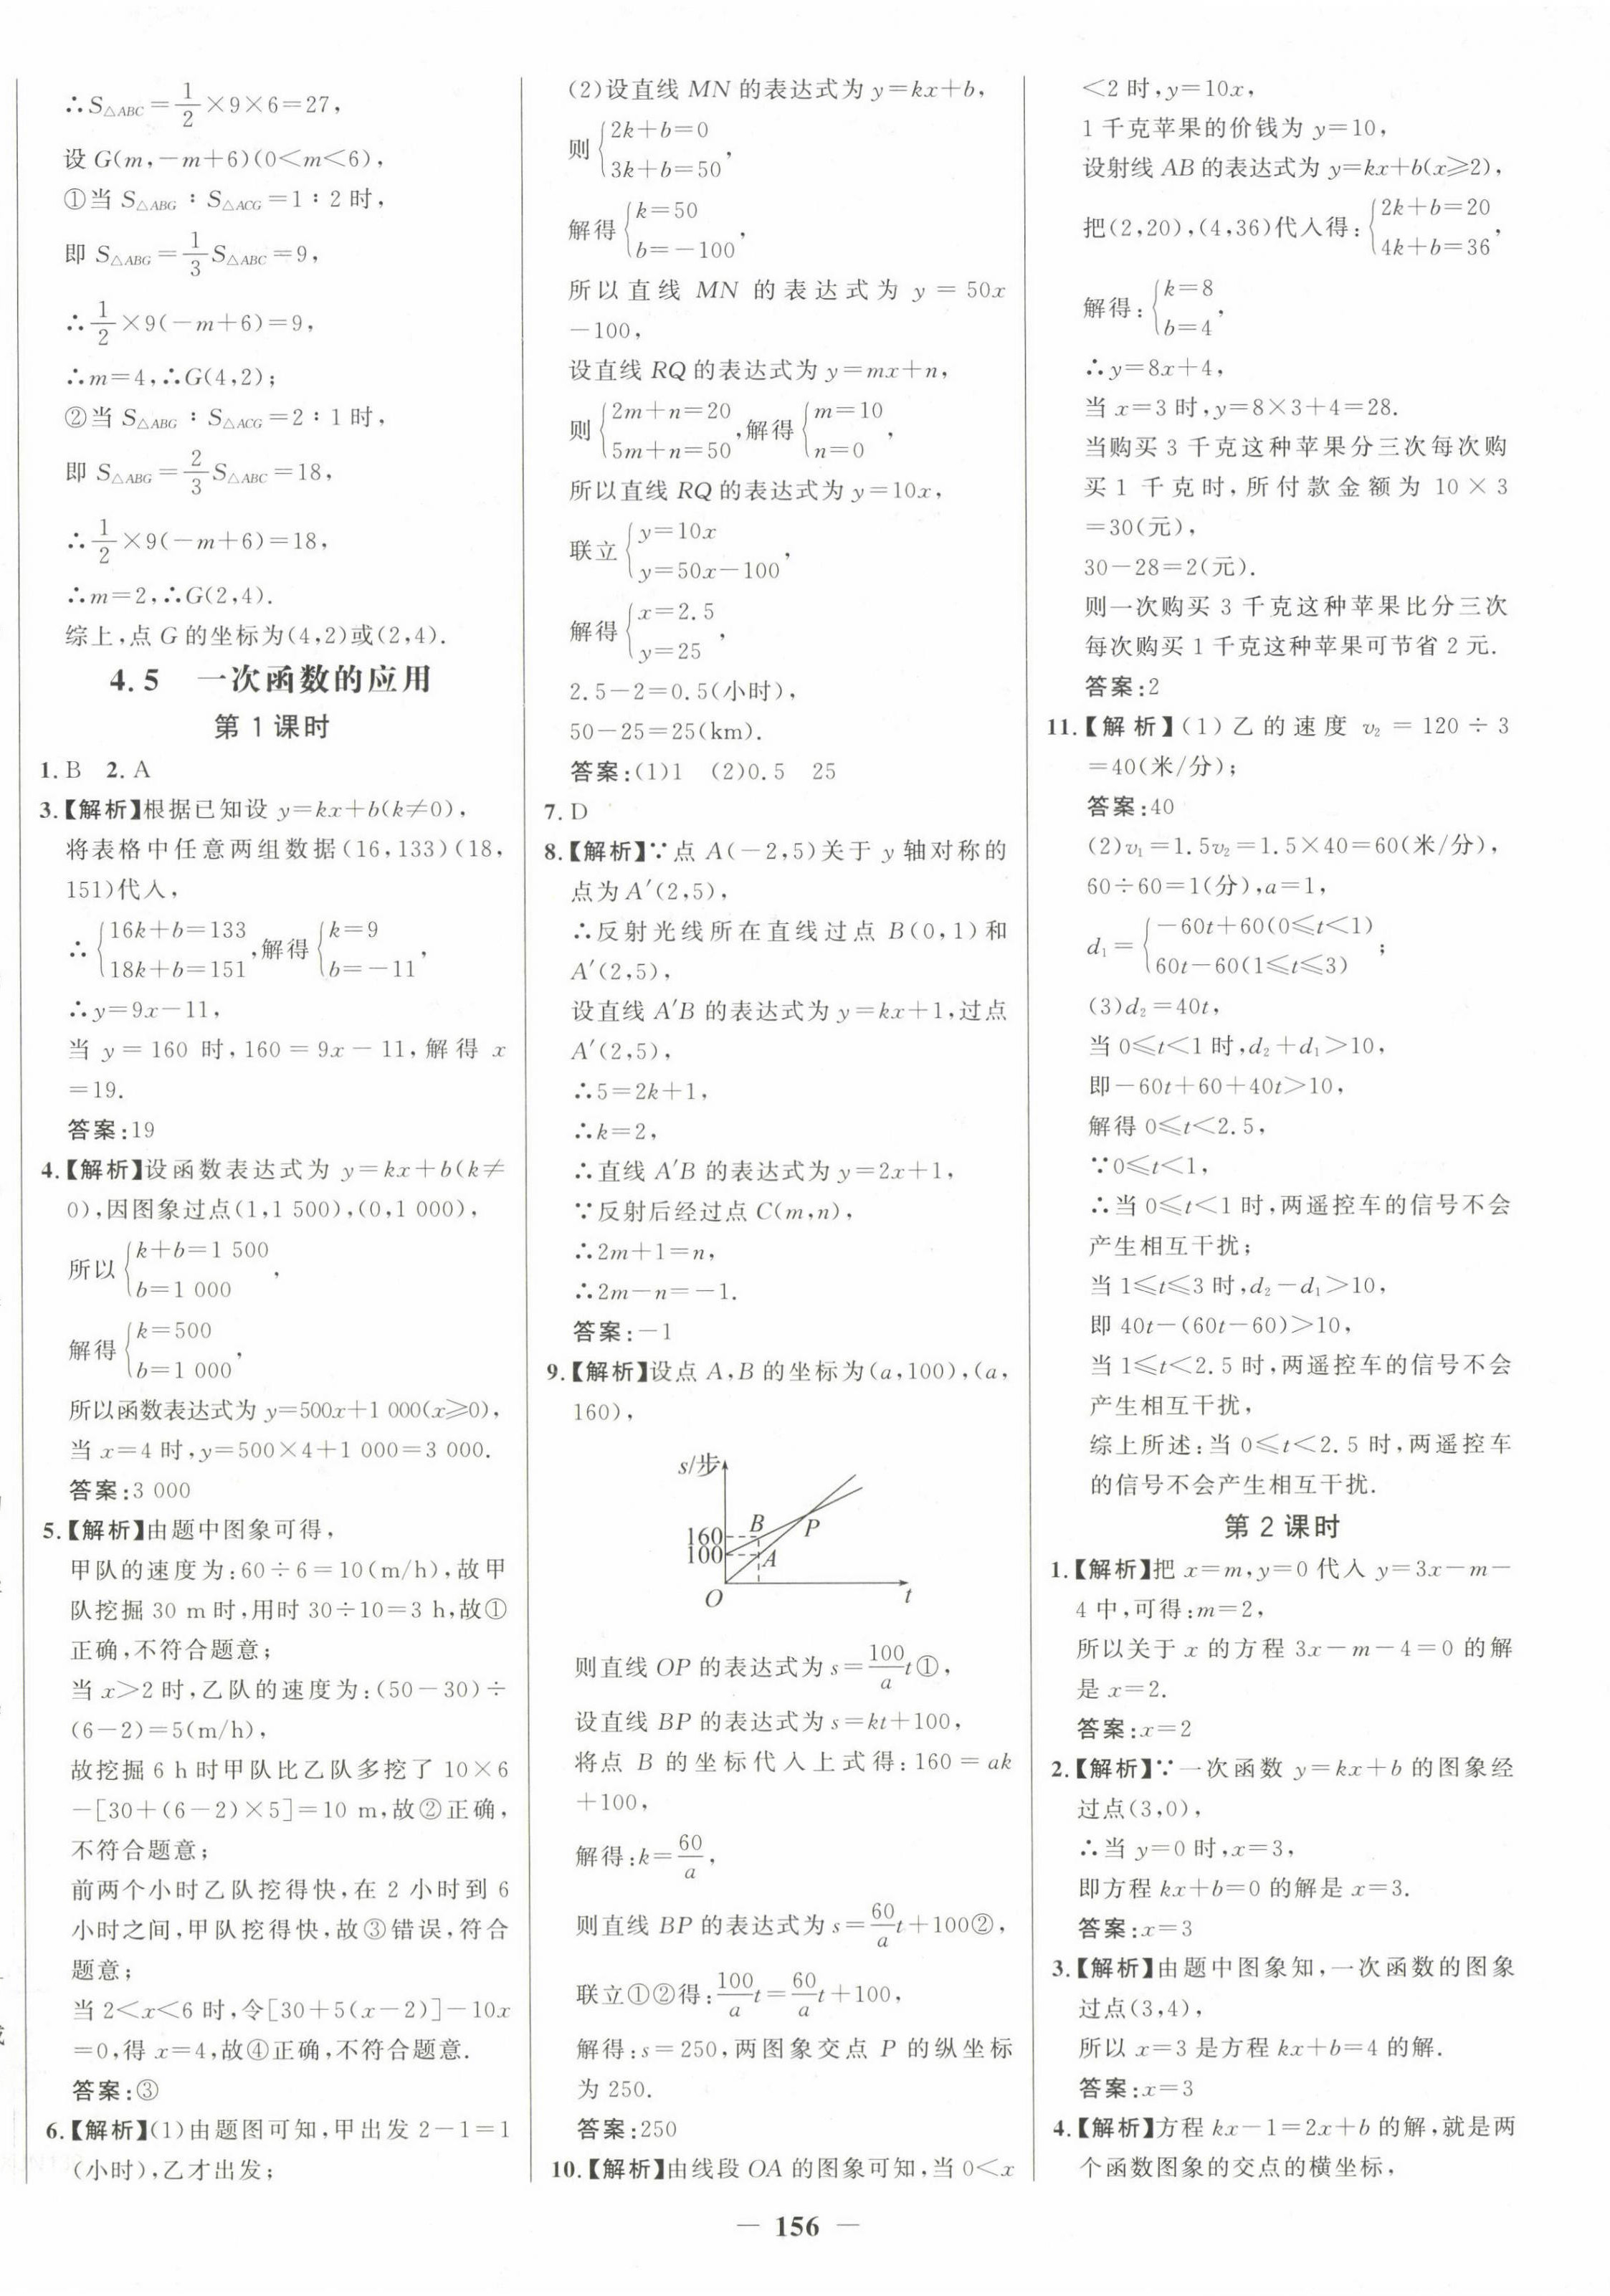 ∴S△ABC=1/2×9×6=27,
设 G(m,-m+6)(0<m<6),
①当 S△ABG∶S△ACG=1∶2 时,
即 S△ABG=1/3 S△ABC=9,
∴1/2×9(-m+6)=9,
∴m=4,∴G(4,2);
②当 S△ABG∶S△ACG=2∶1 时,
即 S△ABG=2/3 S△ABC=18,
∴1/2×9(-m+6)=18,
∴m=2,∴G(2,4).
综上,点 G 的坐标为(4,2)或(2,4).
4.5 一次函数的应用
第 1 课时
1. B 2. A
3.【解析】根据已知设 y=kx+b(k≠0),
将表格中任意两组数据(16,133)(18,
151)代入,
∴{16k+b=133 18k+b=151,解得{k=9 b=-11,
∴y=9x-11,
当 y=160 时,160=9x-11,解得 x
=19.
答案:19
4.【解析】设函数表达式为 y=kx+b(k≠
0),因图象过点(1,1 500),(0,1 000),
所以{k+b=1 500 b=1 000,
解得{k=500 b=1 000,
所以函数表达式为 y=500x+1 000(x≥0),
当 x=4 时,y=500×4+1 000=3 000.
答案:3 000
5.【解析】由题中图象可得,
甲队的速度为:60÷6=10(m/h),故甲
队挖掘 30 m 时,用时 30÷10=3 h,故①
正确,不符合题意;
当 x>2 时,乙队的速度为:(50-30)÷
(6-2)=5(m/h),
故挖掘 6 h 时甲队比乙队多挖了 10×6
-[30+(6-2)×5]=10 m,故②正确,
不符合题意;
前两个小时乙队挖得快,在 2 小时到 6
小时之间,甲队挖得快,故③错误,符合
题意;
当 2<x<6 时,令[30+5(x-2)]-10x
=0,得 x=4,故④正确,不符合题意.
答案:③
6.【解析】(1)由题图可知,甲出发 2-1=1
(小时),乙才出发;
(2)设直线 MN 的表达式为 y=kx+b,
则{2k+b=0 3k+b=50,
解得{k=50 b=-100,
所以直线 MN 的表达式为 y=50x
-100,
设直线 RQ 的表达式为 y=mx+n,
则{2m+n=20 5m+n=50,解得{m=10 n=0,
所以直线 RQ 的表达式为 y=10x,
联立{y=10x y=50x-100,
解得{x=2.5 y=25,
2.5-2=0.5(小时),
50-25=25(km).
答案:(1)1 (2)0.5 25
7. D
8.【解析】∵点 A(-2,5)关于 y 轴对称的
点为 A′(2,5),
∴反射光线所在直线过点 B(0,1)和
A′(2,5),
设直线 A′B 的表达式为 y=kx+1,过点
A′(2,5),
∴5=2k+1,
∴k=2,
∴直线 A′B 的表达式为 y=2x+1,
∵反射后经过点 C(m,n),
∴2m+1=n,
∴2m-n=-1.
答案:-1
9.【解析】设点 A,B 的坐标为(a,100),(a,
160),
s/步
160
100
B
P
A
O
t
则直线 OP 的表达式为 s=100/a t①,
设直线 BP 的表达式为 s=kt+100,
将点 B 的坐标代入上式得:160=ak
+100,
解得:k=60/a,
则直线 BP 的表达式为 s=60/a t+100②,
联立①②得:100/a t=60/a t+100,
解得:s=250,两图象交点 P 的纵坐标
为 250.
答案:250
10.【解析】由线段 OA 的图象可知,当 0<x
<2 时,y=10x,
1 千克苹果的价钱为 y=10,
设射线 AB 的表达式为 y=kx+b(x≥2),
把(2,20),(4,36)代入得:{2k+b=20 4k+b=36,
解得:{k=8 b=4,
∴y=8x+4,
当 x=3 时,y=8×3+4=28.
当购买 3 千克这种苹果分三次每次购
买 1 千克时,所付款金额为 10×3
=30(元),
30-28=2(元).
则一次购买 3 千克这种苹果比分三次
每次购买 1 千克这种苹果可节省 2 元.
答案:2
11.【解析】(1)乙的速度 v₂=120÷3
=40(米/分);
答案:40
(2)v₁=1.5v₂=1.5×40=60(米/分),
60÷60=1(分),a=1,
d₁={-60t+60(0≤t<1) 60t-60(1≤t≤3);
(3)d₂=40t,
当 0≤t<1 时,d₂+d₁>10,
即-60t+60+40t>10,
解得 0≤t<2.5,
∵0≤t<1,
∴当 0≤t<1 时,两遥控车的信号不会
产生相互干扰;
当 1≤t≤3 时,d₂-d₁>10,
即 40t-(60t-60)>10,
当 1≤t<2.5 时,两遥控车的信号不会
产生相互干扰,
综上所述:当 0≤t<2.5 时,两遥控车
的信号不会产生相互干扰.
第 2 课时
1.【解析】把 x=m,y=0 代入 y=3x-m-
4 中,可得:m=2,
所以关于 x 的方程 3x-m-4=0 的解
是 x=2.
答案:x=2
2.【解析】∵一次函数 y=kx+b 的图象经
过点(3,0),
∴当 y=0 时,x=3,
即方程 kx+b=0 的解是 x=3.
答案:x=3
3.【解析】由题中图象知,一次函数的图象
过点(3,4),
所以 x=3 是方程 kx+b=4 的解.
答案:x=3
4.【解析】方程 kx-1=2x+b 的解,就是两
个函数图象的交点的横坐标,
— 156 —